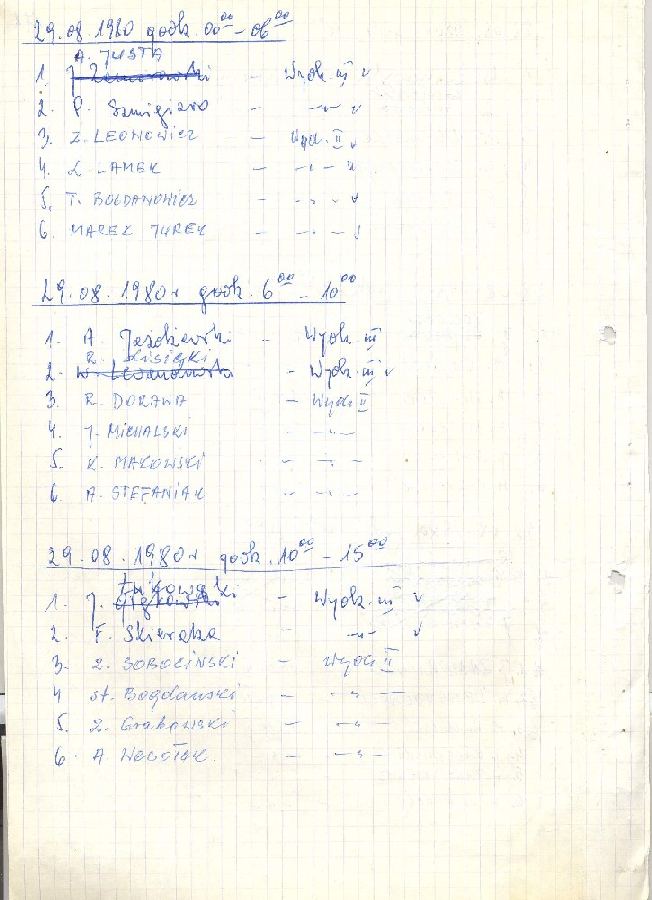 29.08.1980 godz. 00⁰⁰ – 06⁰⁰
A. JUSTA
1. J. – Wydz. III v
2. P. – -„- v
3. Z. LEONOWICZ – Wydz. II v
4. L. LAMEK – -„- v
5. T. BOGDANOWICZ – -„- v
6. MAREK JUREK – -„- v
29.08.1980r godz. 6⁰⁰ – 10⁰⁰
1. A. Jazdzewski – Wydz. III
R. Lisiecki
2. – Wydz. III v
3. R. DORAWA – Wydz II
4. J. MICHALSKI -„-
5. K. MAKOWSKI – -„-
6. A. STEFANIAK – -„-
29.08.1980r godz. 10⁰⁰ – 15⁰⁰
1. J. – Wydz. III v
2. F. Skierka – -„- v
3. Z. SOBOCIŃSKI – Wydz II
4 St. Bogdanski – -„-
5. Z. Grabowski – -„-
6. A – -„-